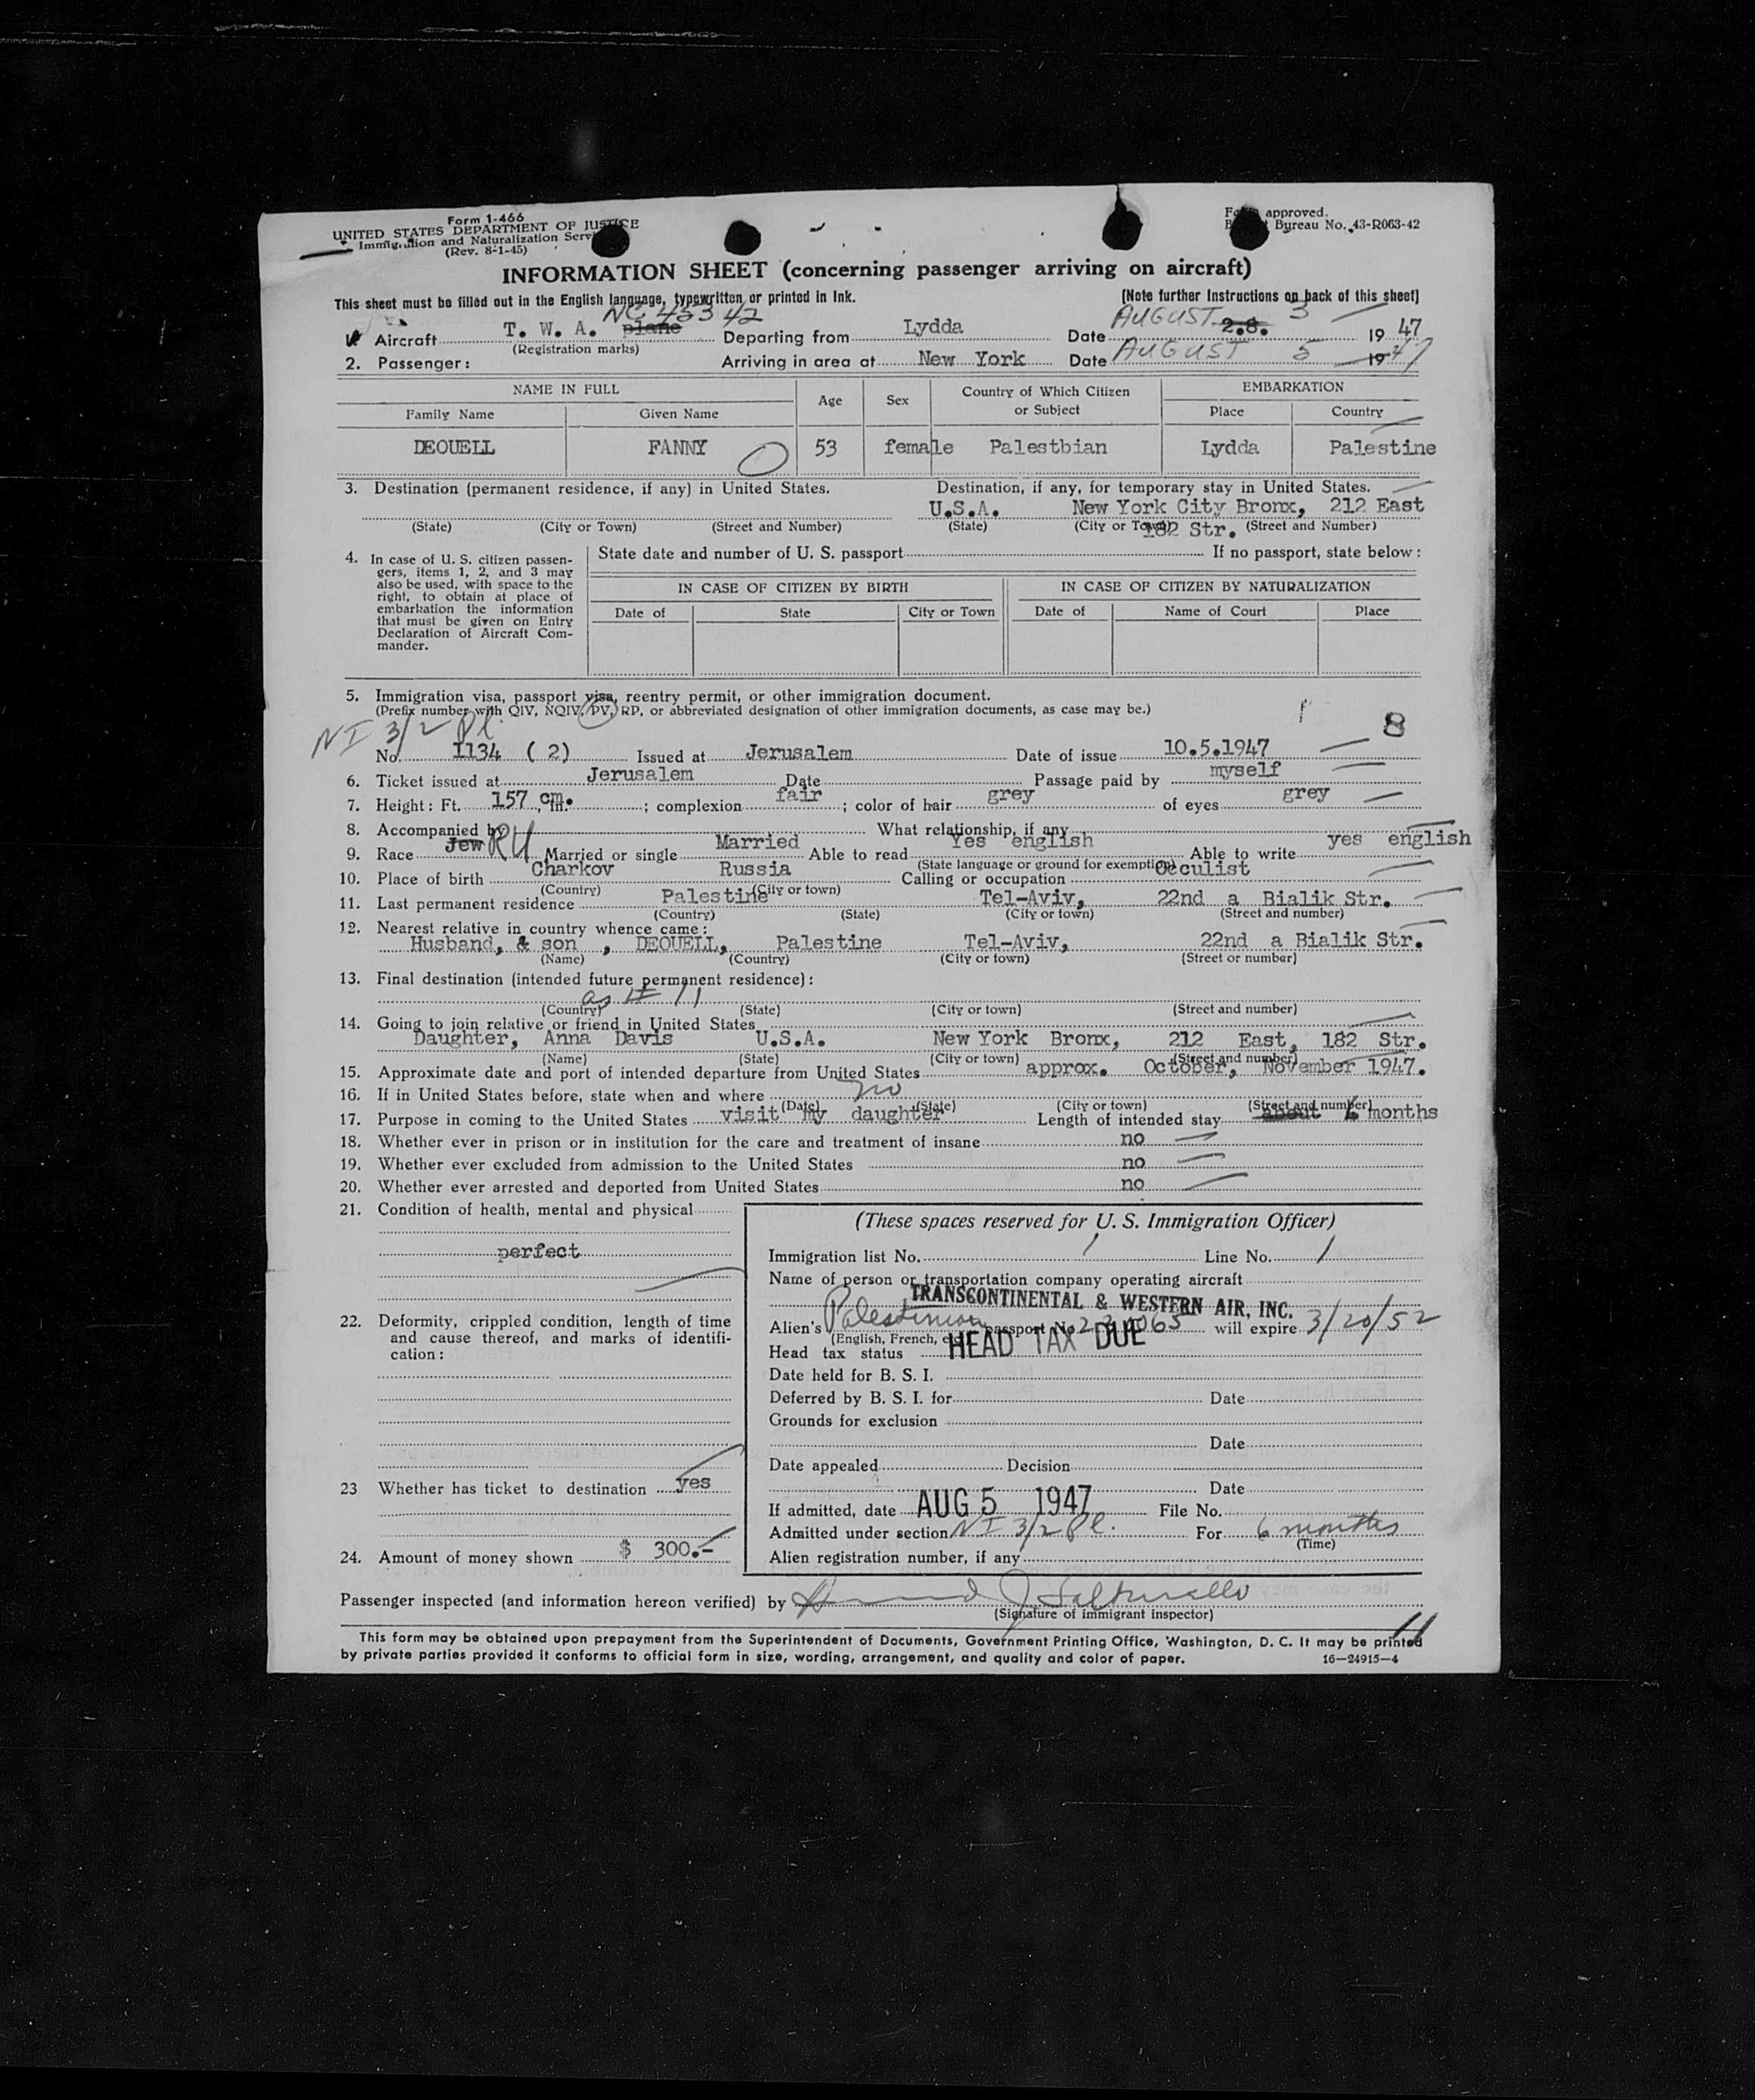 Form 1-466
UNITED STATES DEPARTMENT OF JUSTICE
Immigration and Naturalization Serv
(Rev. 8-1-45)
approved.
Bureau No. 43-R063-42
INFORMATION SHEET (concerning passenger arriving on aircraft)
This sheet must be filled out in the English language, typewritten or printed in Ink.
[Note further Instructions on back of this sheet]
NC 45342
AUGUST 2.8. 3
Aircraft T. W. A. plane Departing from Lydda Date 19 47
(Registration marks)
2. Passenger: Arriving in area at New York Date AUGUST 5 1947
NAME IN FULL Age Sex Country of Which Citizen or Subject EMBARKATION
Family Name Given Name Place Country
DEOUELL FANNY 53 female Palestbian Lydda Palestine
3. Destination (permanent residence, if any) in United States. Destination, if any, for temporary stay in United States.
U.S.A. New York City Bronx, 212 East
(State) (City or Town) (Street and Number) (State) (City or Town) 182 Str. (Street and Number)
4. In case of U. S. citizen passengers, items 1, 2, and 3 may also be used, with space to the right, to obtain at place of embarkation the information that must be given on Entry Declaration of Aircraft Commander.
State date and number of U. S. passport If no passport, state below:
IN CASE OF CITIZEN BY BIRTH IN CASE OF CITIZEN BY NATURALIZATION
Date of State City or Town Date of Name of Court Place
5. Immigration visa, passport visa, reentry permit, or other immigration document.
(Prefix number with QIV, NQIV, PV, RP, or abbreviated designation of other immigration documents, as case may be.)
NI 3/2 Pl.
8
No. 1134 (2) Issued at Jerusalem Date of issue 10.5.1947
6. Ticket issued at Jerusalem Date Passage paid by myself
7. Height: Ft. 157 cm. In. ; complexion fair ; color of hair grey of eyes grey
8. Accompanied by What relationship, if any
9. Race Jew RU Married or single Married Able to read Yes english Able to write yes english
(State language or ground for exemption)
10. Place of birth Charkov Russia Calling or occupation Occulist
(Country) (City or town)
11. Last permanent residence Palestine Tel-Aviv, 22nd a Bialik Str.
(Country) (State) (City or town) (Street and number)
12. Nearest relative in country whence came:
Husband, & son , DEOUELL, Palestine Tel-Aviv, 22nd a Bialik Str.
(Name) (Country) (City or town) (Street or number)
13. Final destination (intended future permanent residence):
as # 11
(Country) (State) (City or town) (Street and number)
14. Going to join relative or friend in United States
Daughter, Anna Davis U.S.A. New York Bronx, 212 East, 182 Str.
(Name) (State) (City or town) (Street and number)
15. Approximate date and port of intended departure from United States approx. October, November 1947.
16. If in United States before, state when and where no
(Date) (State) (City or town) (Street and number)
17. Purpose in coming to the United States visit my daughter Length of intended stay about 6 months
18. Whether ever in prison or in institution for the care and treatment of insane no
19. Whether ever excluded from admission to the United States no
20. Whether ever arrested and deported from United States no
21. Condition of health, mental and physical
perfect
22. Deformity, crippled condition, length of time and cause thereof, and marks of identification:
23 Whether has ticket to destination yes
24. Amount of money shown $ 300.-
(These spaces reserved for U. S. Immigration Officer)
Immigration list No. 1 Line No. 1
Name of person or transportation company operating aircraft
TRANSCONTINENTAL & WESTERN AIR, INC.
Alien's Palestinian passport No. will expire 3/20/52
(English, French, etc.)
Head tax status HEAD TAX DUE
Date held for B. S. I.
Deferred by B. S. I. for Date
Grounds for exclusion
Date
Date appealed Decision
Date
If admitted, date AUG 5 1947 File No.
Admitted under section NI 3/2 Pl. For 6 months
(Time)
Alien registration number, if any
Passenger inspected (and information hereon verified) by
(Signature of immigrant inspector)
11
This form may be obtained upon prepayment from the Superintendent of Documents, Government Printing Office, Washington, D. C. It may be printed
by private parties provided it conforms to official form in size, wording, arrangement, and quality and color of paper.
16—24915-4